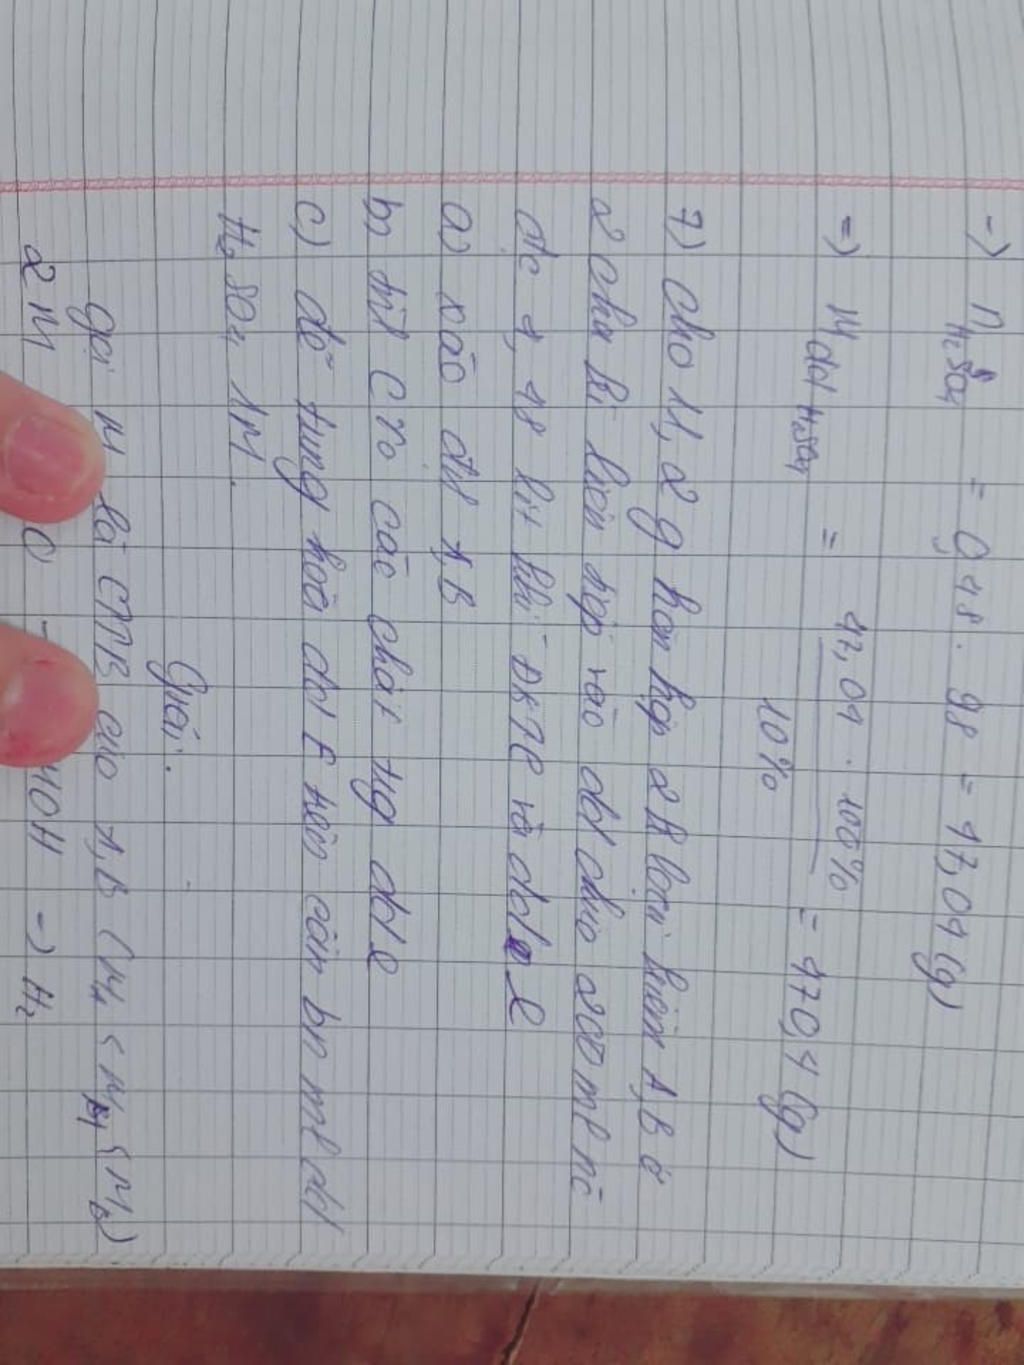 -> n H₂SO₄ = 0,48 . 98 = 47,04 (g)
=> M ddH₂SO₄ = 47,04 . 100% / 10% = 470,4 (g)
7) cho 11,2 g hỗn hợp 2 k loại kiềm A, B ở
2 chu kì liên tiếp vào dd chứa 200 ml nc
đc 4,48 lit khí ĐKTC và dd E
a) xác đh A, B
b) tìh C% các chất tg dd E
c) để tung hoà dd E trên cần bn ml dd
H₂SO₄ 1M.
Giải:
gọi M là CTTB cho A, B (M_A < M_M < M_B)
2M OH -> H₂